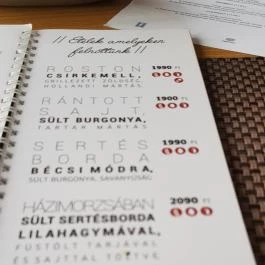 // Ételek amelyeken
felnőttünk //
ROSTON 1990 FT
CSIRKEMELL,
GRILLEZETT ZÖLDSÉG
HOLLANDI MÁRTÁS
RÁNTOTT 1900 FT
SAJT,
SÜLT BURGONYA,
TARTÁR MÁRTÁS
SERTÉS 1990 FT
BORDA
BÉCSI MÓDRA,
SÜLT BURGONYA, SAVANYÚSÁG
HÁZIMORZSÁBAN 2090 FT
SÜLT SERTÉSBORDA
LILAHAGYMÁVAL,
FÜSTÖLT TARJÁVAL
ÉS SAJTTAL TÖLTVE